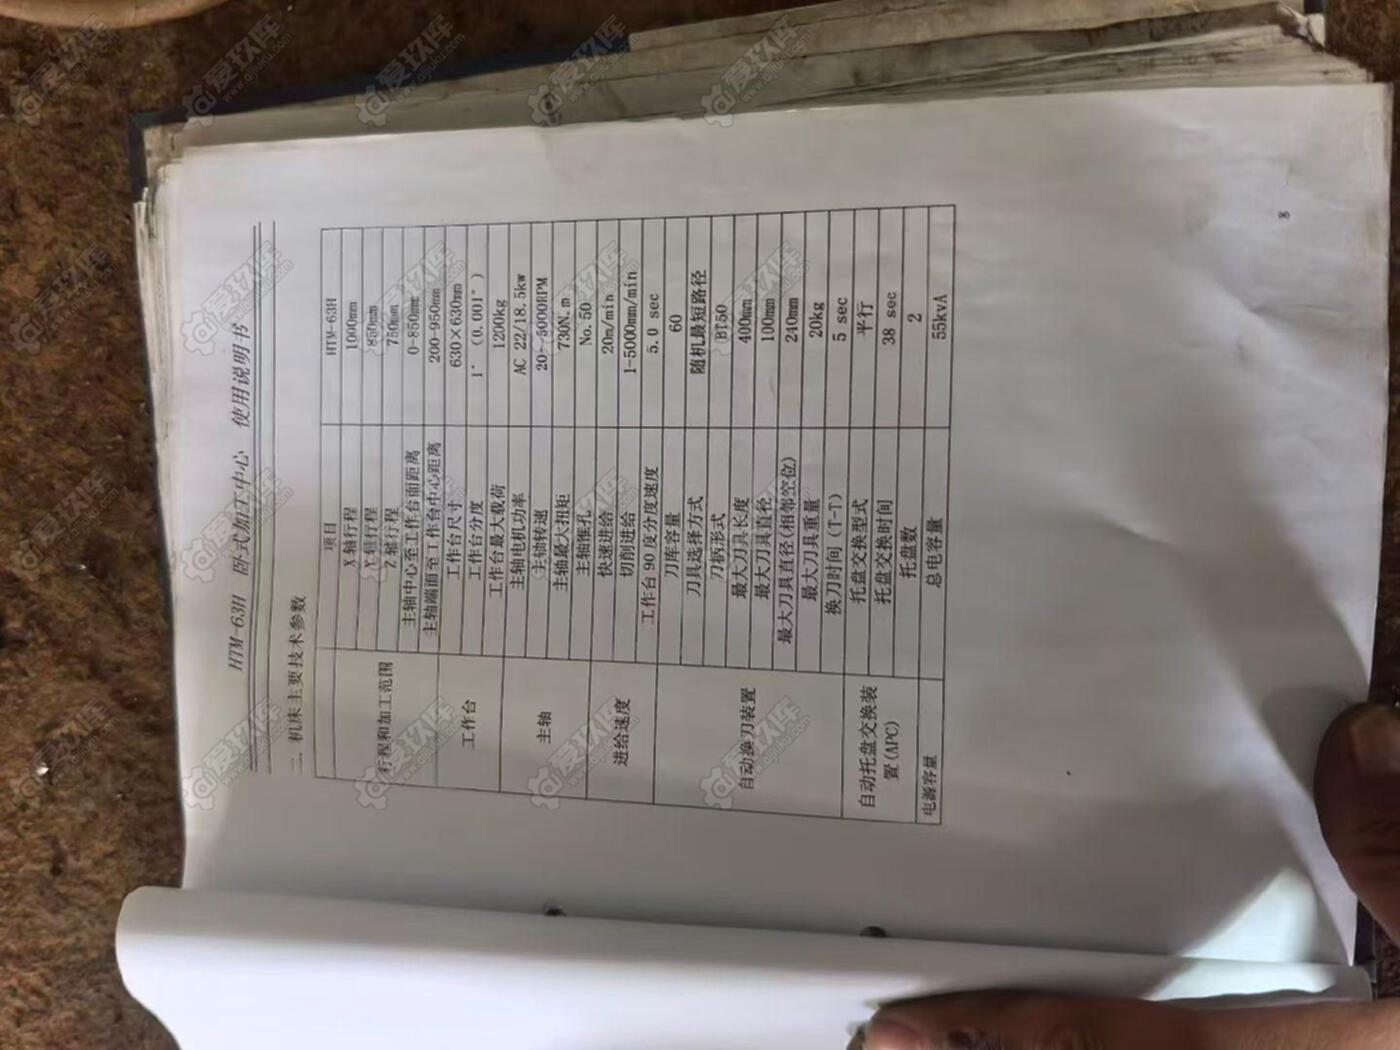 HTM-63H 卧式加工中心 使用说明书
二、机床主要技术参数
项目 HTM-63H
行程和加工范围
X 轴行程 1000mm
Y 轴行程 850mm
Z 轴行程 750mm
主轴中心至工作台面距离 0-850mm
主轴端面至工作台中心距离 200-950mm
工作台
工作台尺寸 630×630mm
工作台分度 1°(0.001°)
工作台最大载荷 1200kg
主轴
主轴电机功率 AC 22/18.5kw
主轴转速 20--5000RPM
主轴最大扭矩 730N.m
主轴锥孔 No.50
进给速度
快速进给 20m/min
切削进给 1-5000mm/min
工作台 90 度分度速度 5.0 sec
自动换刀装置
刀库容量 60
刀具选择方式 随机最短路径
刀柄形式 BT50
最大刀具长度 400mm
最大刀具直径 100mm
最大刀具直径(相邻空位) 240mm
最大刀具重量 20kg
换刀时间(T-T) 5 sec
自动托盘交换装
置(APC)
托盘交换型式 平行
托盘交换时间 38 sec
托盘数 2
电源容量 总电容量 55kvA
8
爱玖库
www.aijiuku.com